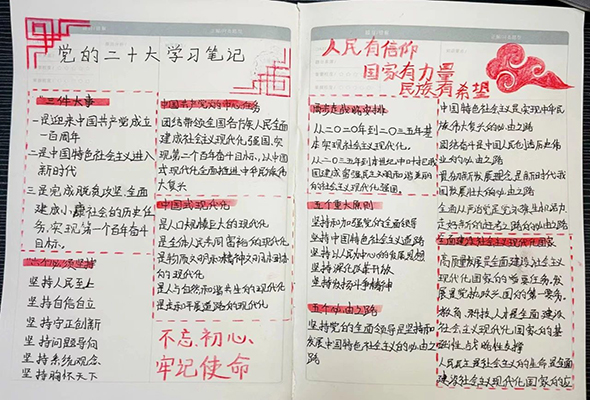 党的二十大学习笔记
三件大事
一是迎来中国共产党成立
一百周年
二是中国特色社会主义进入
新时代
三是完成脱贫攻坚、全面
建成小康社会的历史任
务,实现第一个百年奋斗
目标。
六个必须坚持
坚持人民至上
坚持自信自立
坚持守正创新
坚持问题导向
坚持系统观念
坚持胸怀天下
中国共产党的中心任务
团结带领全国各族人民全面
建成社会主义现代化强国、实
现第二个百年奋斗目标,以中国
式现代化全面推进中华民族伟
大复兴
中国式现代化
是人口规模巨大的现代化
是全体人民共同富裕的现代化
是物质文明和精神文明相协调
的现代化
是人与自然和谐共生的现代化
是走和平发展道路的现代化
不忘初心、
牢记使命
人民有信仰
国家有力量
民族有希望
两步走战略安排
从二〇二〇年到二〇三五年基
本实现社会主义现代化。
从二〇三五年到本世纪中叶把我
国建成富强民主文明和谐美丽的
社会主义现代化强国。
五个重大原则
坚持和加强党的全面领导
坚持中国特色社会主义道路
坚持以人民为中心的发展思想
坚持深化改革开放
坚持发扬斗争精神
五个必由之路
坚持党的全面领导是坚持和
发展中国特色社会主义的必由之
路
中国特色社会主义是实现中华民
族伟大复兴的必由之路
团结奋斗是中国人民创造历史伟
业的必由之路
贯彻新发展理念是新时代我
国发展壮大的必由之路
全面从严治党是党永葆生机活力、
走好新的赶考之路的必由之路
全面建设社会主义现代化国家
高质量发展是全面建设社会主
义现代化国家的首要任务。发
展是党执政兴国的第一要务。
教育、科技、人才是全面建设社
会主义现代化国家的基
础性、战略性支撑
人民民主是社会主义的生命,是全面
建设社会主义现代化国家的应